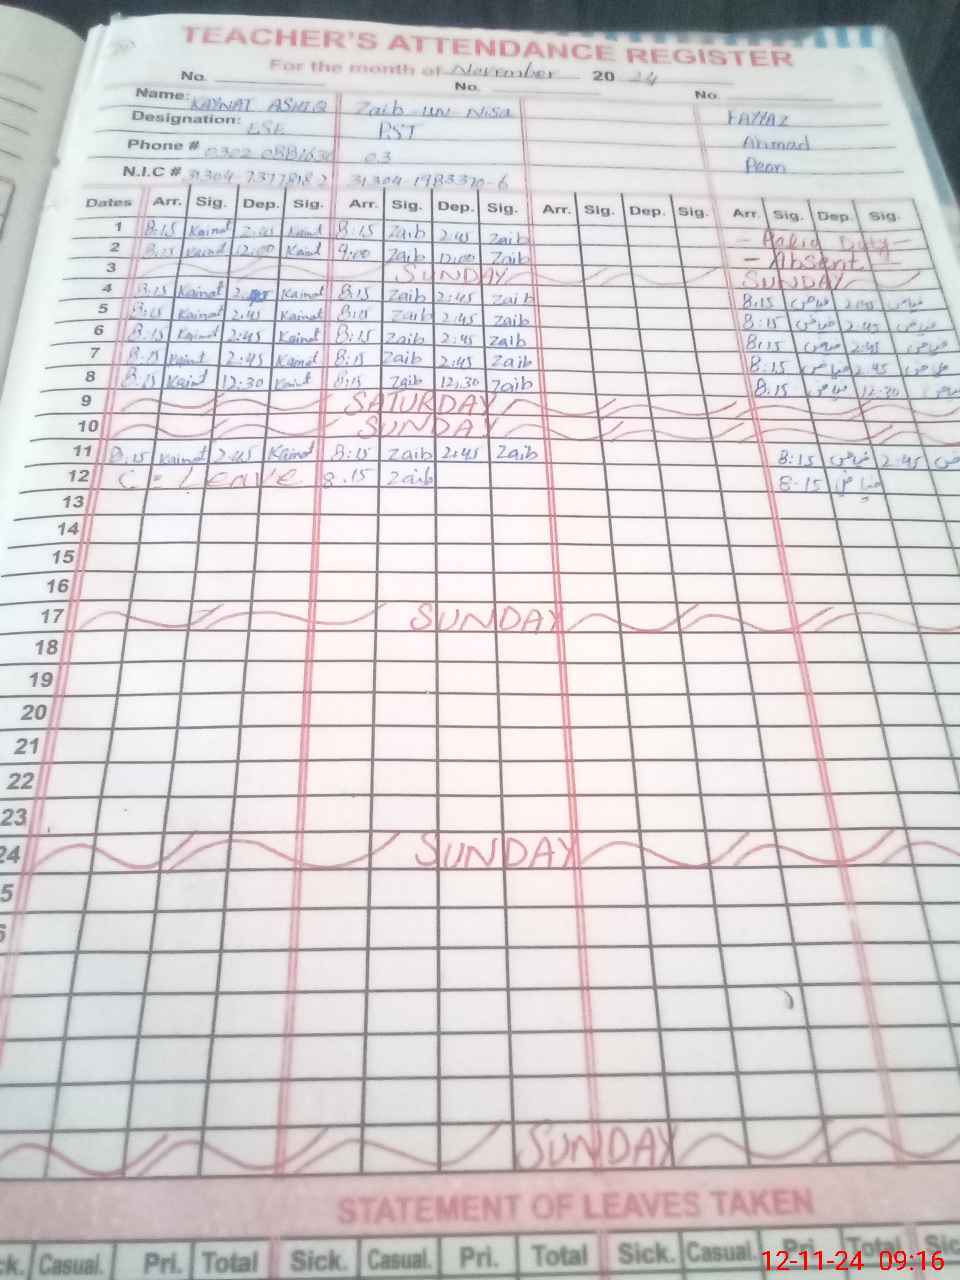 TEACHER'S ATTENDANCE REGISTER
For the month of November 20 24
No. No. No.
Name: KAYNAT ASHIQ Zaib UN NiSa FAYYAZ
Designation: ESE PST Ahmad
Phone # 0302 03 Peon
N.I.C # 31304-1983370-6
Dates Arr. Sig. Dep. Sig. Arr. Sig. Dep. Sig. Arr. Sig. Dep. Sig. Arr. Sig. Dep. Sig.
1 8:15 Kainat 2:45 Kainat 8:15 Zaib 2:45 Zaib - Polio Duty -
2 8:15 Kainat 12:00 Kainat 9:00 Zaib 12:00 Zaib - Absent -
3 SUNDAY SUNDAY
4 8:15 Kainat 2:45 Kainat 8:15 Zaib 2:45 Zaib 8:15 فیاض 2:45 فیاض
5 8:15 Kainat 2:45 Kainat 8:15 Zaib 2:45 Zaib 8:15 فیاض 2:45 فیاض
6 8:15 Kainat 2:45 Kainat 8:15 Zaib 2:45 Zaib 8:15 فیاض 2:45 فیاض
7 8:15 Kainat 2:45 Kainat 8:15 Zaib 2:45 Zaib 8:15 فیاض 2:45 فیاض
8 8:15 Kainat 12:30 Kainat 8:15 Zaib 12:30 Zaib 8:15 فیاض 12:30 فیاض
9 SATURDAY
10 SUNDAY
11 8:15 Kainat 2:45 Kainat 8:15 Zaib 2:45 Zaib 8:15 فیاض 2:45
12 C = Leave 8.15 Zaib 8-15 فیاض
13
14
15
16
17 SUNDAY
18
19
20
21
22
23
24 SUNDAY
5
6
SUNDAY
STATEMENT OF LEAVES TAKEN
ck. Casual. Pri. Total Sick. Casual. Pri. Total Sick. Casual. Pri. Total Sic
12-11-24 09:16